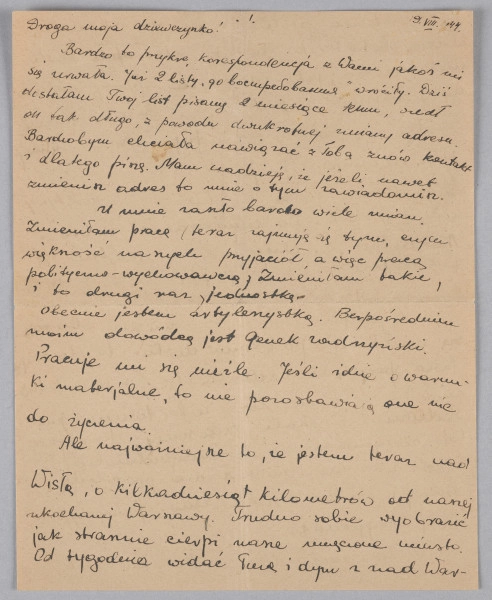 9. VIII. 44.
Droga moja dziewczynko!
Bardzo to przykre, korespondencja z Wami jakoś mi
się urwała. Już 2 listy, go wróciły. Dziś
dostałam Twój list pisany 2 miesiące temu, szedł
on tak długo, z powodu dwukrotnej zmiany adresu.
Bardzobym chciała nawiązać z Tobą znów kontakt
i dlatego piszę. Mam nadzieję, że jeżeli nawet
zmienisz adres to mnie o tym zawiadomisz.
U mnie zaszło bardzo wiele zmian.
Zmieniłam pracę (teraz zajmuję się tym, czym
większość naszych przyjaciół a więc pracą
polityczno-wychowawczą) Zmieniłam także,
i to drugi raz, jednostkę.
Obecnie jestem artylerzystką. Bezpośrednim
moim dowódcą jest Genek Zadrzyński.
Pracuje mi się nieźle. Jeśli idzie o warun-
ki materjalne, to nie pozostawiają one nic
do życzenia.
Ale najważniejsze to, że jestem teraz nad
Wisłą, o kilkadziesiąt kilometrów od naszej
ukochanej Warszawy. Trudno sobie wyobrazić
jak strasznie cierpi nasze umęczone miasto.
Od tygodnia widać łunę i dym z nad War-